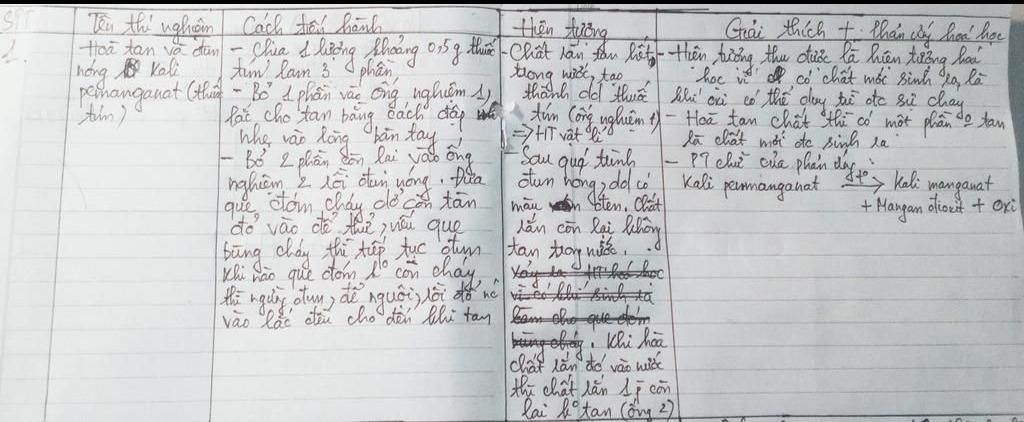 STT
Tên thí nghiệm
Cách tiến hành
Hiện tượng
Giải thích + phản ứng hoá học
1.
Hoà tan và đun
nóng Kali
pemanganat (thuốc
tím)
- Chia 1 lượng khoảng 0,5 g thuốc
tím làm 3 phần
- Bỏ 1 phần vào ống nghiệm 1,
lắc cho tan bằng cách đập
nhẹ vào lòng bàn tay
- Bỏ 2 phần còn lại vào ống
nghiệm 2 rồi đun nóng. Đưa
que đóm cháy dở còn tàn
đỏ vào để thử, nếu que
bùng cháy thì tiếp tục đun
Khi nào que đóm ko còn cháy
thì ngừng đun, để nguội, rồi đổ nc
vào lắc đều cho đến khi tan
- Chất rắn tan hết
trong nước, tạo
thành dd thuốc
tím (ống nghiệm 1)
=> HT vật lí
- Sau quá trình
đun nóng, dd có
màu đen. Chất
rắn còn lại không
tan trong nước.
Vậy là HT hoá học
vì có khí sinh ra
làm cho que đóm
bùng cháy. Khi hoà
chất rắn đó vào nước
thì chất rắn 1 p còn
lại ko tan (ống 2)
- Hiện tượng thu được là hiện tượng hoá
học vì có chất mới sinh ra, là
khí oxi có thể duy trì đc sự cháy
- Hoà tan chất thì có một phần ko tan
là chất mới đc sinh ra
- PT chữ của phản ứng:
Kali permanganat to → Kali manganat
+ Mangan đioxit + Oxi